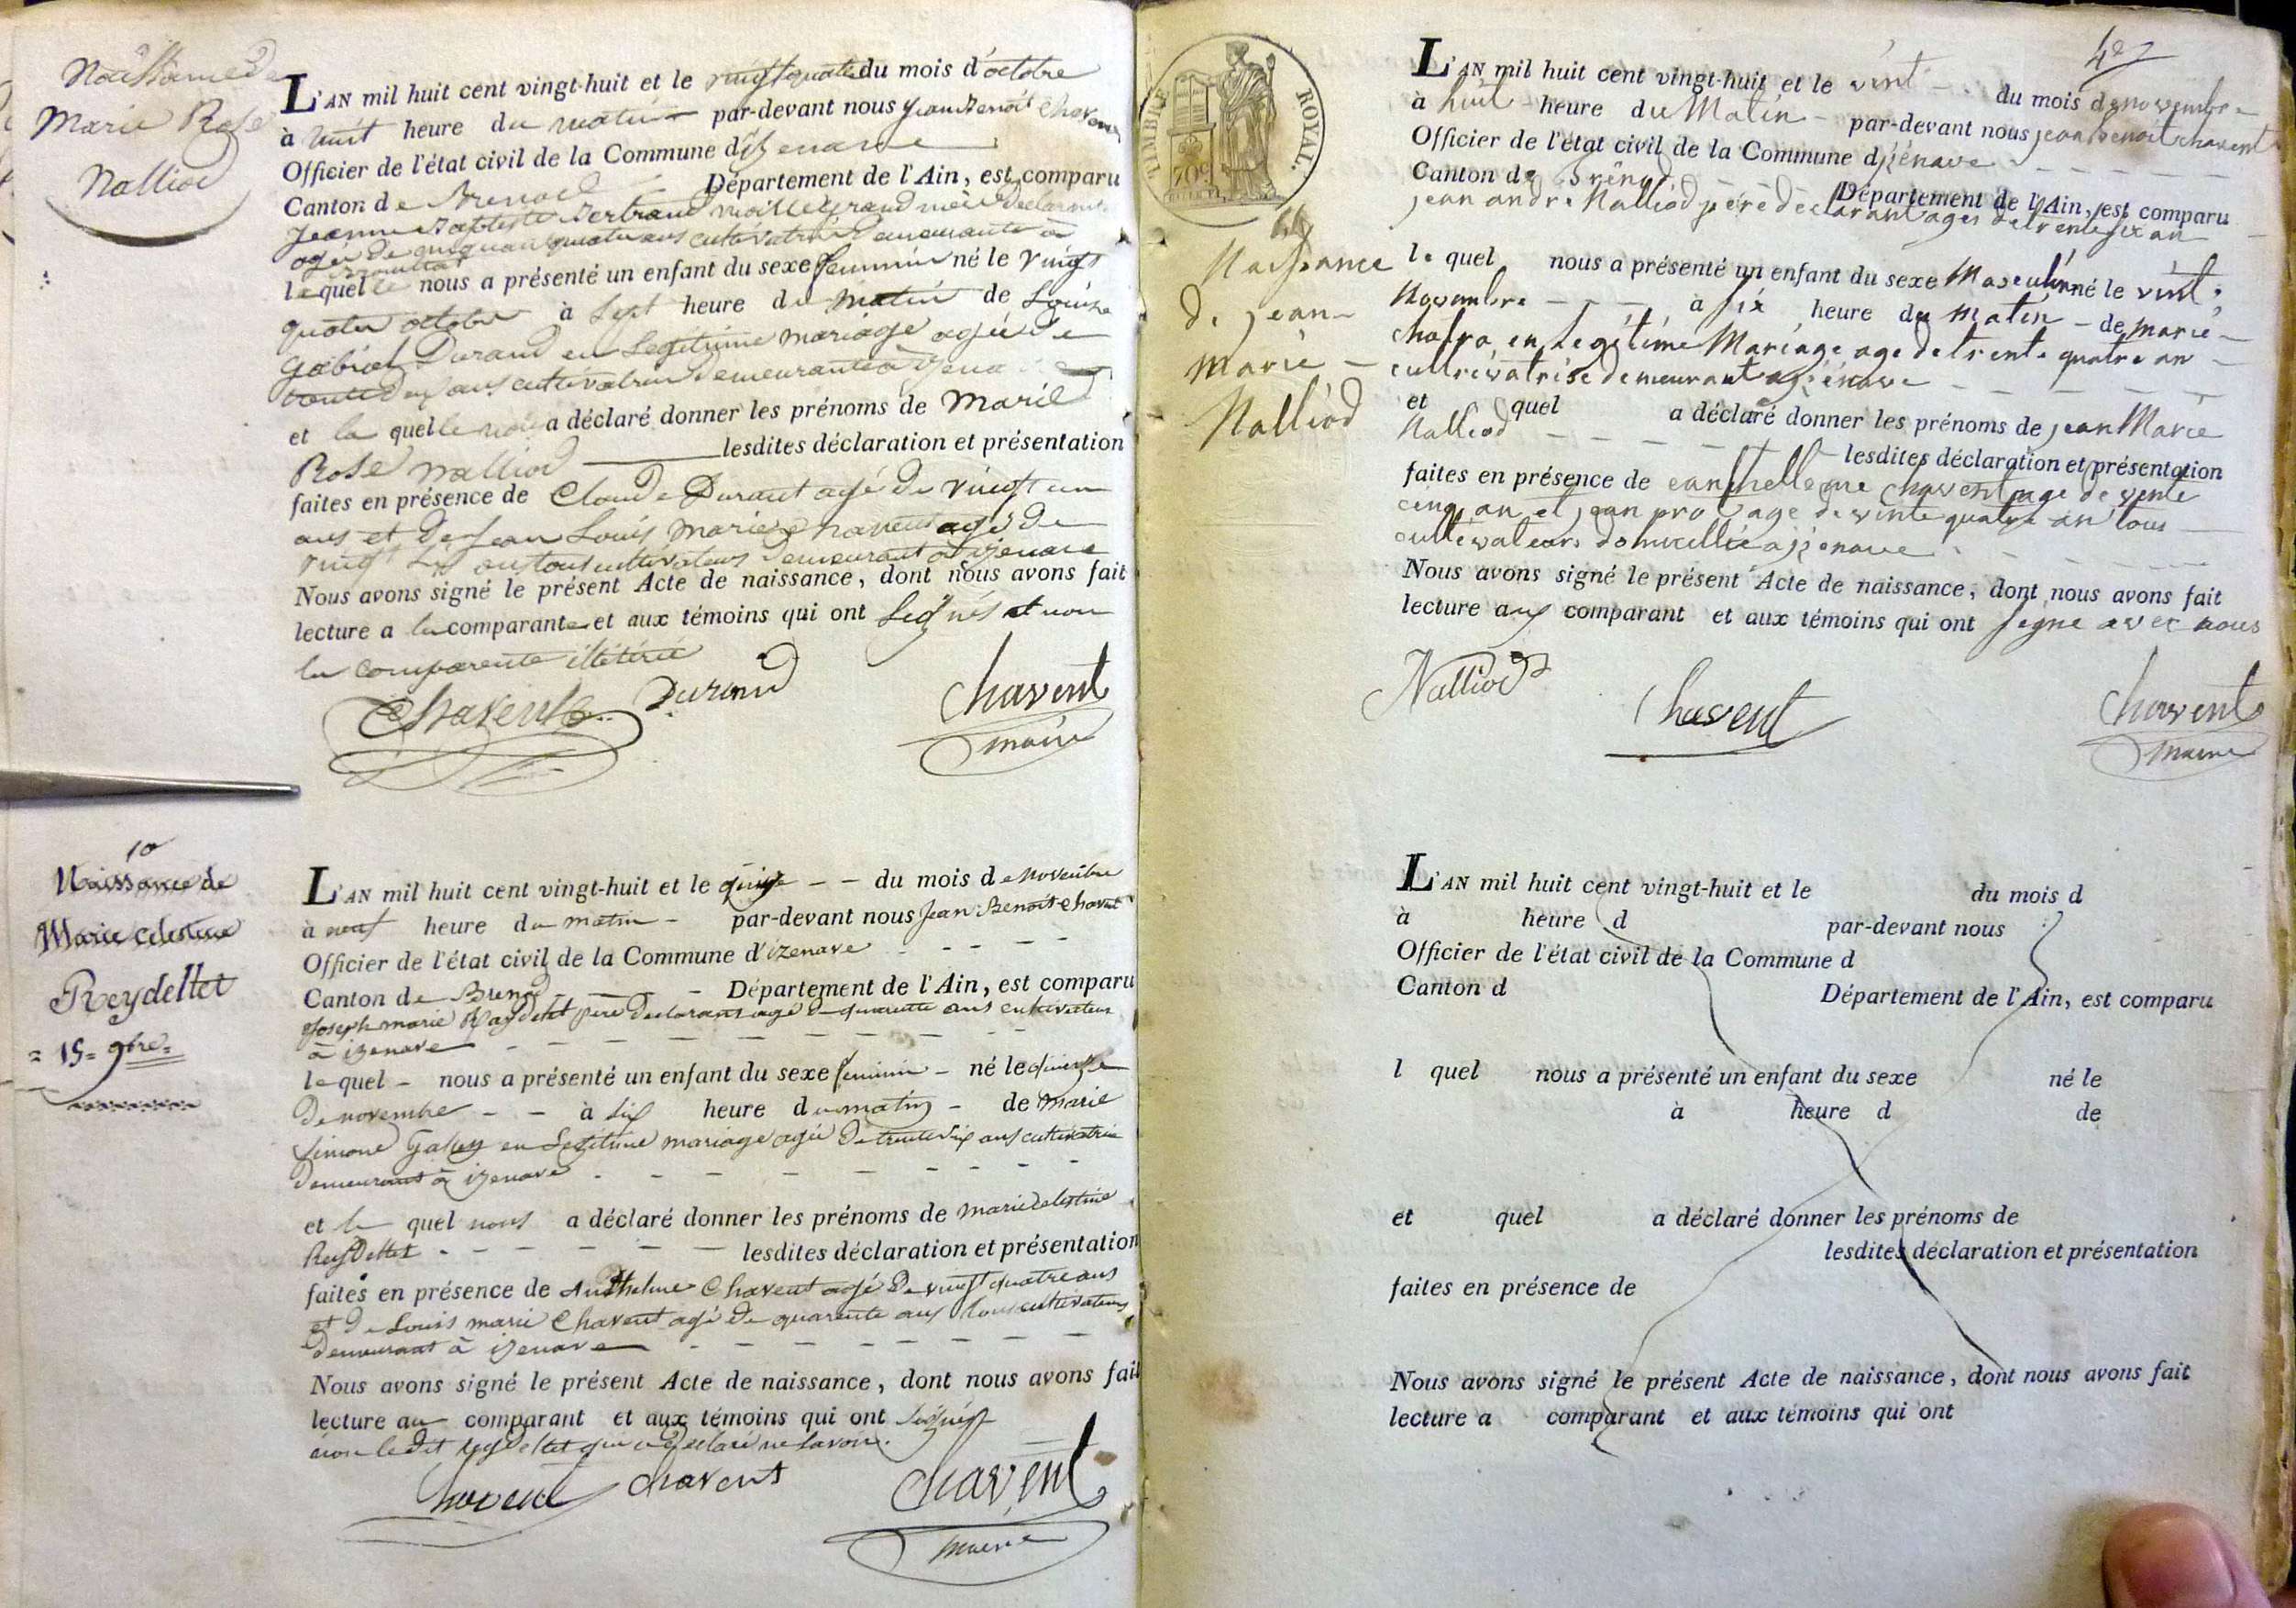 Naissance de
Marie Rose
Nalliod
L'AN mil huit cent vingt-huit et le vingt quatre du mois d'octobre
à huit heure du matin par-devant nous Jean Benoit Chavent
Officier de l'état civil de la Commune d'izenave
Canton de Brenod Département de l'Ain, est comparu
jeanne Baptiste Bertrand grand mère declarante
agée de cinquante quatre ans cultivatrice demeurante à
izenave
laquelle nous a présenté un enfant du sexe feminin né le vingt
quatre octobre à sept heure du matin de Louise
Gabriel Durand en Legitime mariage agée de
trente deux ans cultivatrice demeurante à izenave
et la quelle nous a déclaré donner les prénoms de Marie
Rose nalliod lesdites déclaration et présentation
faites en présence de Claude Durant agé de vingt un
ans et de Jean Louis Marie Chavent agé de
vingt six ans tous cultivateurs demeurant à izenave
Nous avons signé le présent Acte de naissance, dont nous avons fait
lecture a la comparante et aux témoins qui ont signés et non
la comparente illetérée
Chavent Durand Chavent
maire
10
Naissance de
Marie Celestine
Reydellet
= 15 = 9bre =
L'AN mil huit cent vingt-huit et le quinze - - du mois de novembre
à neuf heure du matin - par-devant nous Jean Benoit Chavent
Officier de l'état civil de la Commune d'izenave - - - -
Canton de Brenod - - - Département de l'Ain, est comparu
Joseph marie Reydellet père declarant agé de quarante ans cultivateur
à izenave - - - - - - - -
lequel - nous a présenté un enfant du sexe feminin - né le quinze
de novembre - - à six heure du matin - de Marie
Simone Gabey en Legitime mariage agée de trente six ans cultivatrice
demeurant à izenave - - - - - - - -
et le quel nous a déclaré donner les prénoms de marie Celestine
Reydellet - - - - - - lesdites déclaration et présentation
faites en présence de Anthelme Chavent agé de vingt quatre ans
et de Louis marie Chavent agé de quarente ans tous cultivateurs
demeurant à izenave - - - - - -
Nous avons signé le présent Acte de naissance, dont nous avons fait
lecture au comparant et aux témoins qui ont signés
non le dit Reydellet qui a declaré ne savoir.
Chavent Chavent Chavent
maire
TIMBRE ROYAL.
70c
11
Naissance
de jean
marie
Nalliod
L'AN mil huit cent vingt-huit et le vint - - du mois de novembre -
à huit heure du Matin - par-devant nous jean benoit chavent
Officier de l'état civil de la Commune d'izénave - - - - -
Canton de Brénod - - - Département de l'Ain, est comparu
jean andre Nalliod père declarant ages de trente six an
le quel nous a présenté un enfant du sexe Masculin né le vint
Novembre - - - à six heure du matin - de marie -
Chatra en Legitime Mariage age de trente quatre an -
cultivatrise demeurant a izénave - - - - -
et quel a déclaré donner les prénoms de jean Marie
Nalliod - - - - - lesdites déclaration et présentation
faites en présence de chavent age de vente
cinq an et jean prot age de vinte quatre an tous
cultivateurs domicellie a izenave - - - -
Nous avons signé le présent Acte de naissance, dont nous avons fait
lecture aux comparant et aux témoins qui ont signe avec nous
Nalliod Chavent Chavent
maire
L'AN mil huit cent vingt-huit et le du mois d
à heure d par-devant nous
Officier de l'état civil de la Commune d
Canton d Département de l'Ain, est comparu
l quel nous a présenté un enfant du sexe né le
à heure d de
et quel a déclaré donner les prénoms de
lesdites déclaration et présentation
faites en présence de
Nous avons signé le présent Acte de naissance, dont nous avons fait
lecture a comparant et aux témoins qui ont